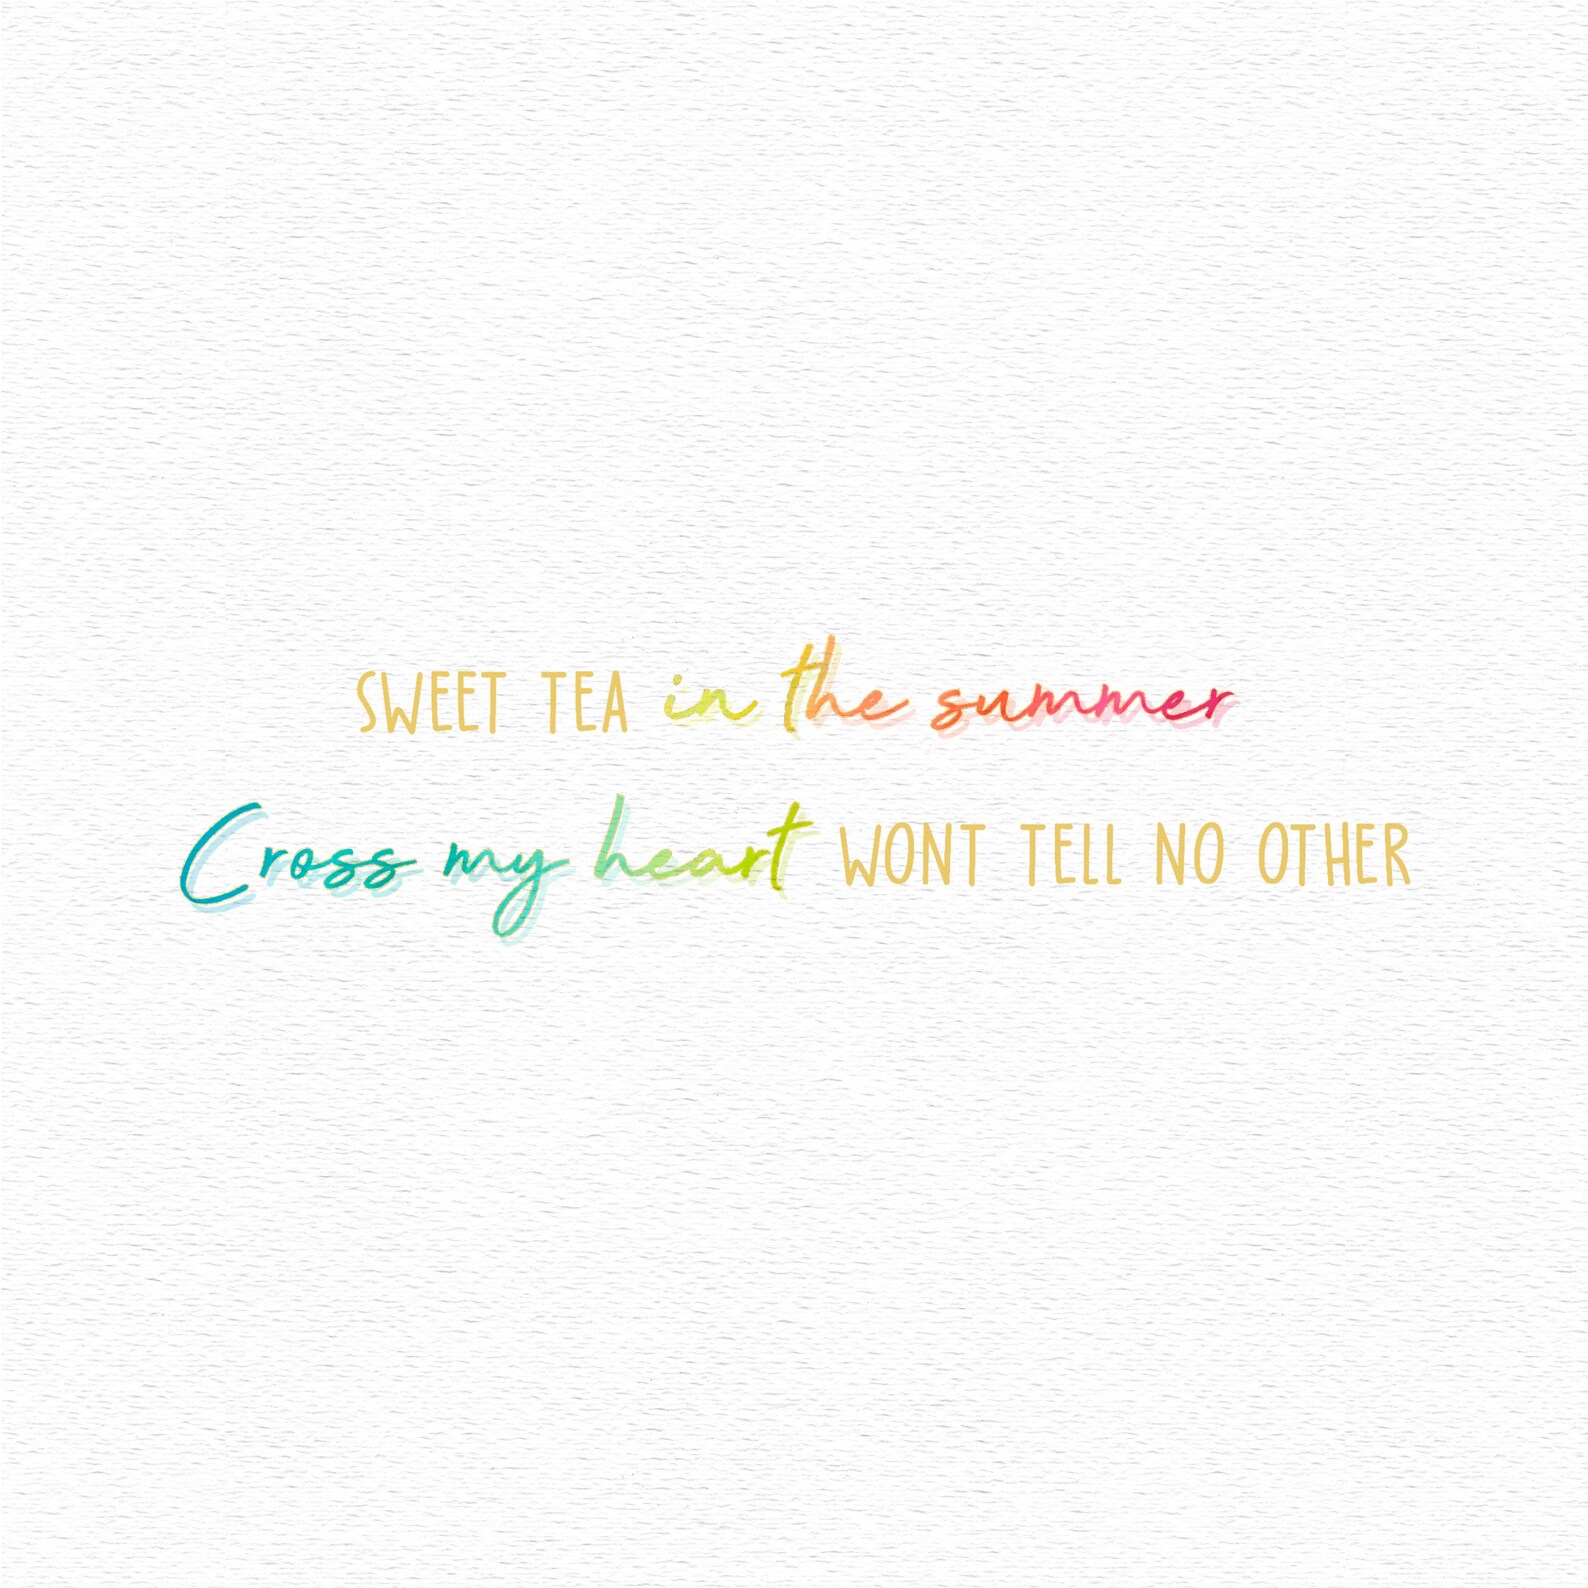 SWEET TEA in the summer
Cross my heart WONT TELL NO OTHER